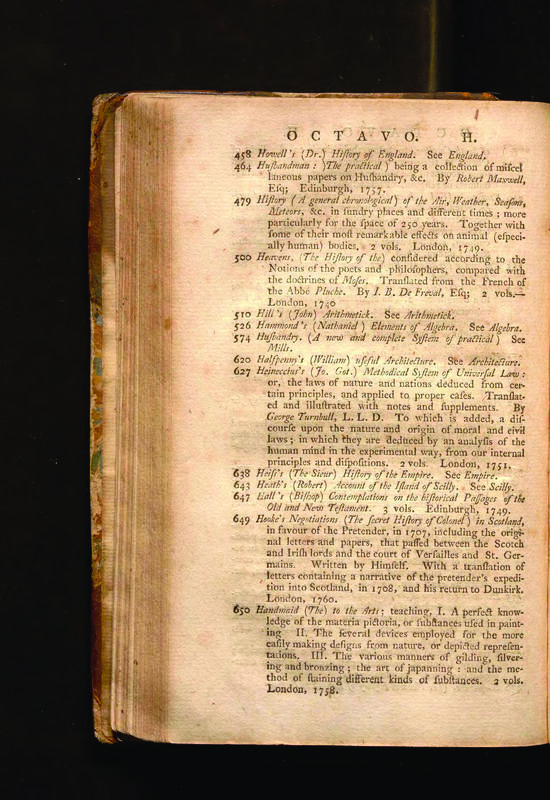 OCTAVO. H.
458 Howell's (Dr.) Hiſtory of England. See England.
464 Huſbandman : (The practical) being a collection of miſcel
laneous papers on Huſbandry, &c. By Robert Maxwell,
Eſq; Edinburgh, 1757.
479 Hiſtory (A general chronological) of the Air, Weather, Seaſons,
Meteors, &c. in ſundry places and different times ; more
particularly for the ſpace of 250 years. Together with
ſome of their moſt remarkable effects on animal (eſpeci-
ally human) bodies, 2 vols. London, 1749.
500 Heavens, (The Hiſtory of the) conſidered according to the
Notions of the poets and philoſophers, compared with
the doctrines of Moſes. Tranſlated from the French of
the Abbé Pluche. By J. B. De Freval, Eſq; 2 vols.—
London, 1740
510 Hill's (John) Arithmetick. See Arithmetick.
526 Hammond's (Nathaniel) Elements of Algebra. See Algebra.
574 Huſbandry. (A new and complete Syſtem of practical) See
Mills.
620 Halfpenny's (William) uſeful Architecture. See Architecture.
627 Heineccius's (Jo. Got.) Methodical Syſtem of Univerſal Law :
or, the laws of nature and nations deduced from cer-
tain principles, and applied to proper caſes. Tranſlat-
ed and illuſtrated with notes and ſupplements. By
George Turnbull, L. L. D. To which is added, a diſ-
courſe upon the nature and origin of moral and civil
laws ; in which they are deduced by an analyſis of the
human mind in the experimental way, from our internal
principles and diſpoſitions. 2 vols. London, 1751.
638 Heiſs's (The Sieur) Hiſtory of the Empire. See Empire.
643 Heath's (Robert) Account of the Iſland of Scilly. See Scilly.
647 Hall's (Biſhop) Contemplations on the hiſtorical Paſſages of the
Old and New Teſtament. 3 vols. Edinburgh, 1749.
649 Hooke's Negotiations (The ſecret Hiſtory of Colonel) in Scotland,
in favour of the Pretender, in 1707, including the origi-
nal letters and papers, that paſſed between the Scotch
and Iriſh lords and the court of Verſailles and St. Ger-
mains. Written by Himſelf. With a tranſlation of
letters containing a narrative of the pretender's expedi-
tion into Scotland, in 1708, and his return to Dunkirk.
London, 1760.
650 Handmaid (The) to the Arts ; teaching, I. A perfect know-
ledge of the materia pictoria, or ſubſtances uſed in paint-
ing II. The ſeveral devices employed for the more
eaſily making deſigns from nature, or depicted repreſen-
tations. III. The various manners of gilding, ſilver-
ing and bronzing ; the art of japanning : and the me-
thod of ſtaining different kinds of ſubſtances. 2 vols.
London, 1758.